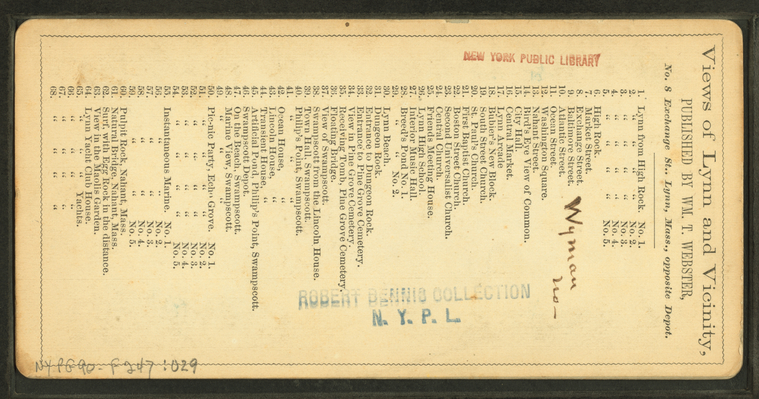 Views of Lynn and Vicinity,
PUBLISHED BY WM. T. WEBSTER,
No. 8 Exchange St., Lynn, Mass., opposite Depot.
1. Lynn from High Rock. No. 1.
2. " " " " No. 2.
3. " " " " No. 3.
4. " " " " No. 4.
5. " " " " No. 5.
6. High Rock.
7. Market Street.
8. Exchange Street.
9. Baltimore Street.
10. Atlantic Street.
11. Ocean Street.
12. Washington Square.
13. Nahant Street.
14. Bird's Eye View of Common.
15. City Hall.
16. Central Market.
17. Lynn Arcade.
18. Bubier's New Block.
19. South Street Church.
20. St. Paul's Church.
21. First Baptist Church.
22. Boston Street Church.
23. Second Universalist Church.
24. Central Church.
25. Friends Meeting House.
26. Lynn High School.
27. Interior Music Hall.
28. Breed's Pond No. 1.
29. " " No. 2.
30. Lynn Beach.
31. Dungeon Rock.
32. Entrance to Dungeon Rock.
33. Entrance to Pine Grove Cemetery.
34. View in Pine Grove Cemetery.
35. Receiving Tomb, Pine Grove Cemetery.
36. Floating Bridge.
37. View of Swampscott.
38. Swampscott from the Lincoln House.
39. Town Hall, Swampscott.
40. Philip's Point, Swampscott.
41. " " "
42. Ocean House, "
43. Lincoln House, "
44. Transient House,
45. Artificial Lake, Philip's Point, Swampscott.
46. Swampscott Depot.
47. On the Beach, Swampscott.
48. Marine View, Swampscott.
49. " " "
50. Pic-nic Party, Echo Grove. No. 1.
51. " " " " No. 2.
52. " " " " No. 3.
53. " " " " No. 4.
54. " " " " No. 5.
55. Instantaneous Marine. No. 1.
56. " " No. 2.
57. " " No. 3.
58. " " No. 4.
59. " " No. 5.
60. Pulpit Rock, Nahant, Mass.
61. Natural Bridge, Nahant, Mass.
62. Surf, with Egg Rock in the distance.
63. View in the Maolis Garden.
64. Lynn Yacht Club House.
65. " " " Yachts.
66. " " " "
67. " " " "
68. " " " "
Wyman
no
NEW YORK PUBLIC LIBRARY
ROBERT DENNIS COLLECTION
N. Y. P. L.
NYPG90-F247:029